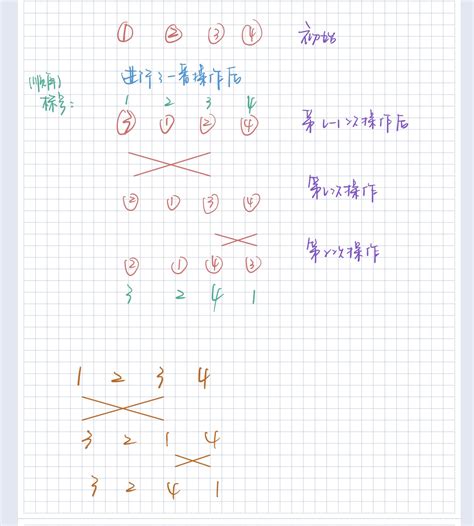 ① ② ③ ④ 初始
进行了一番操作后
(顺序)
标号: 1 2 3 4
③ ① ② ④ 第i-1次操作后
② ① ③ ④ 第i次操作
② ① ④ ③ 第次操作
3 2 4 1
1 2 3 4
3 2 1 4
3 2 4 1